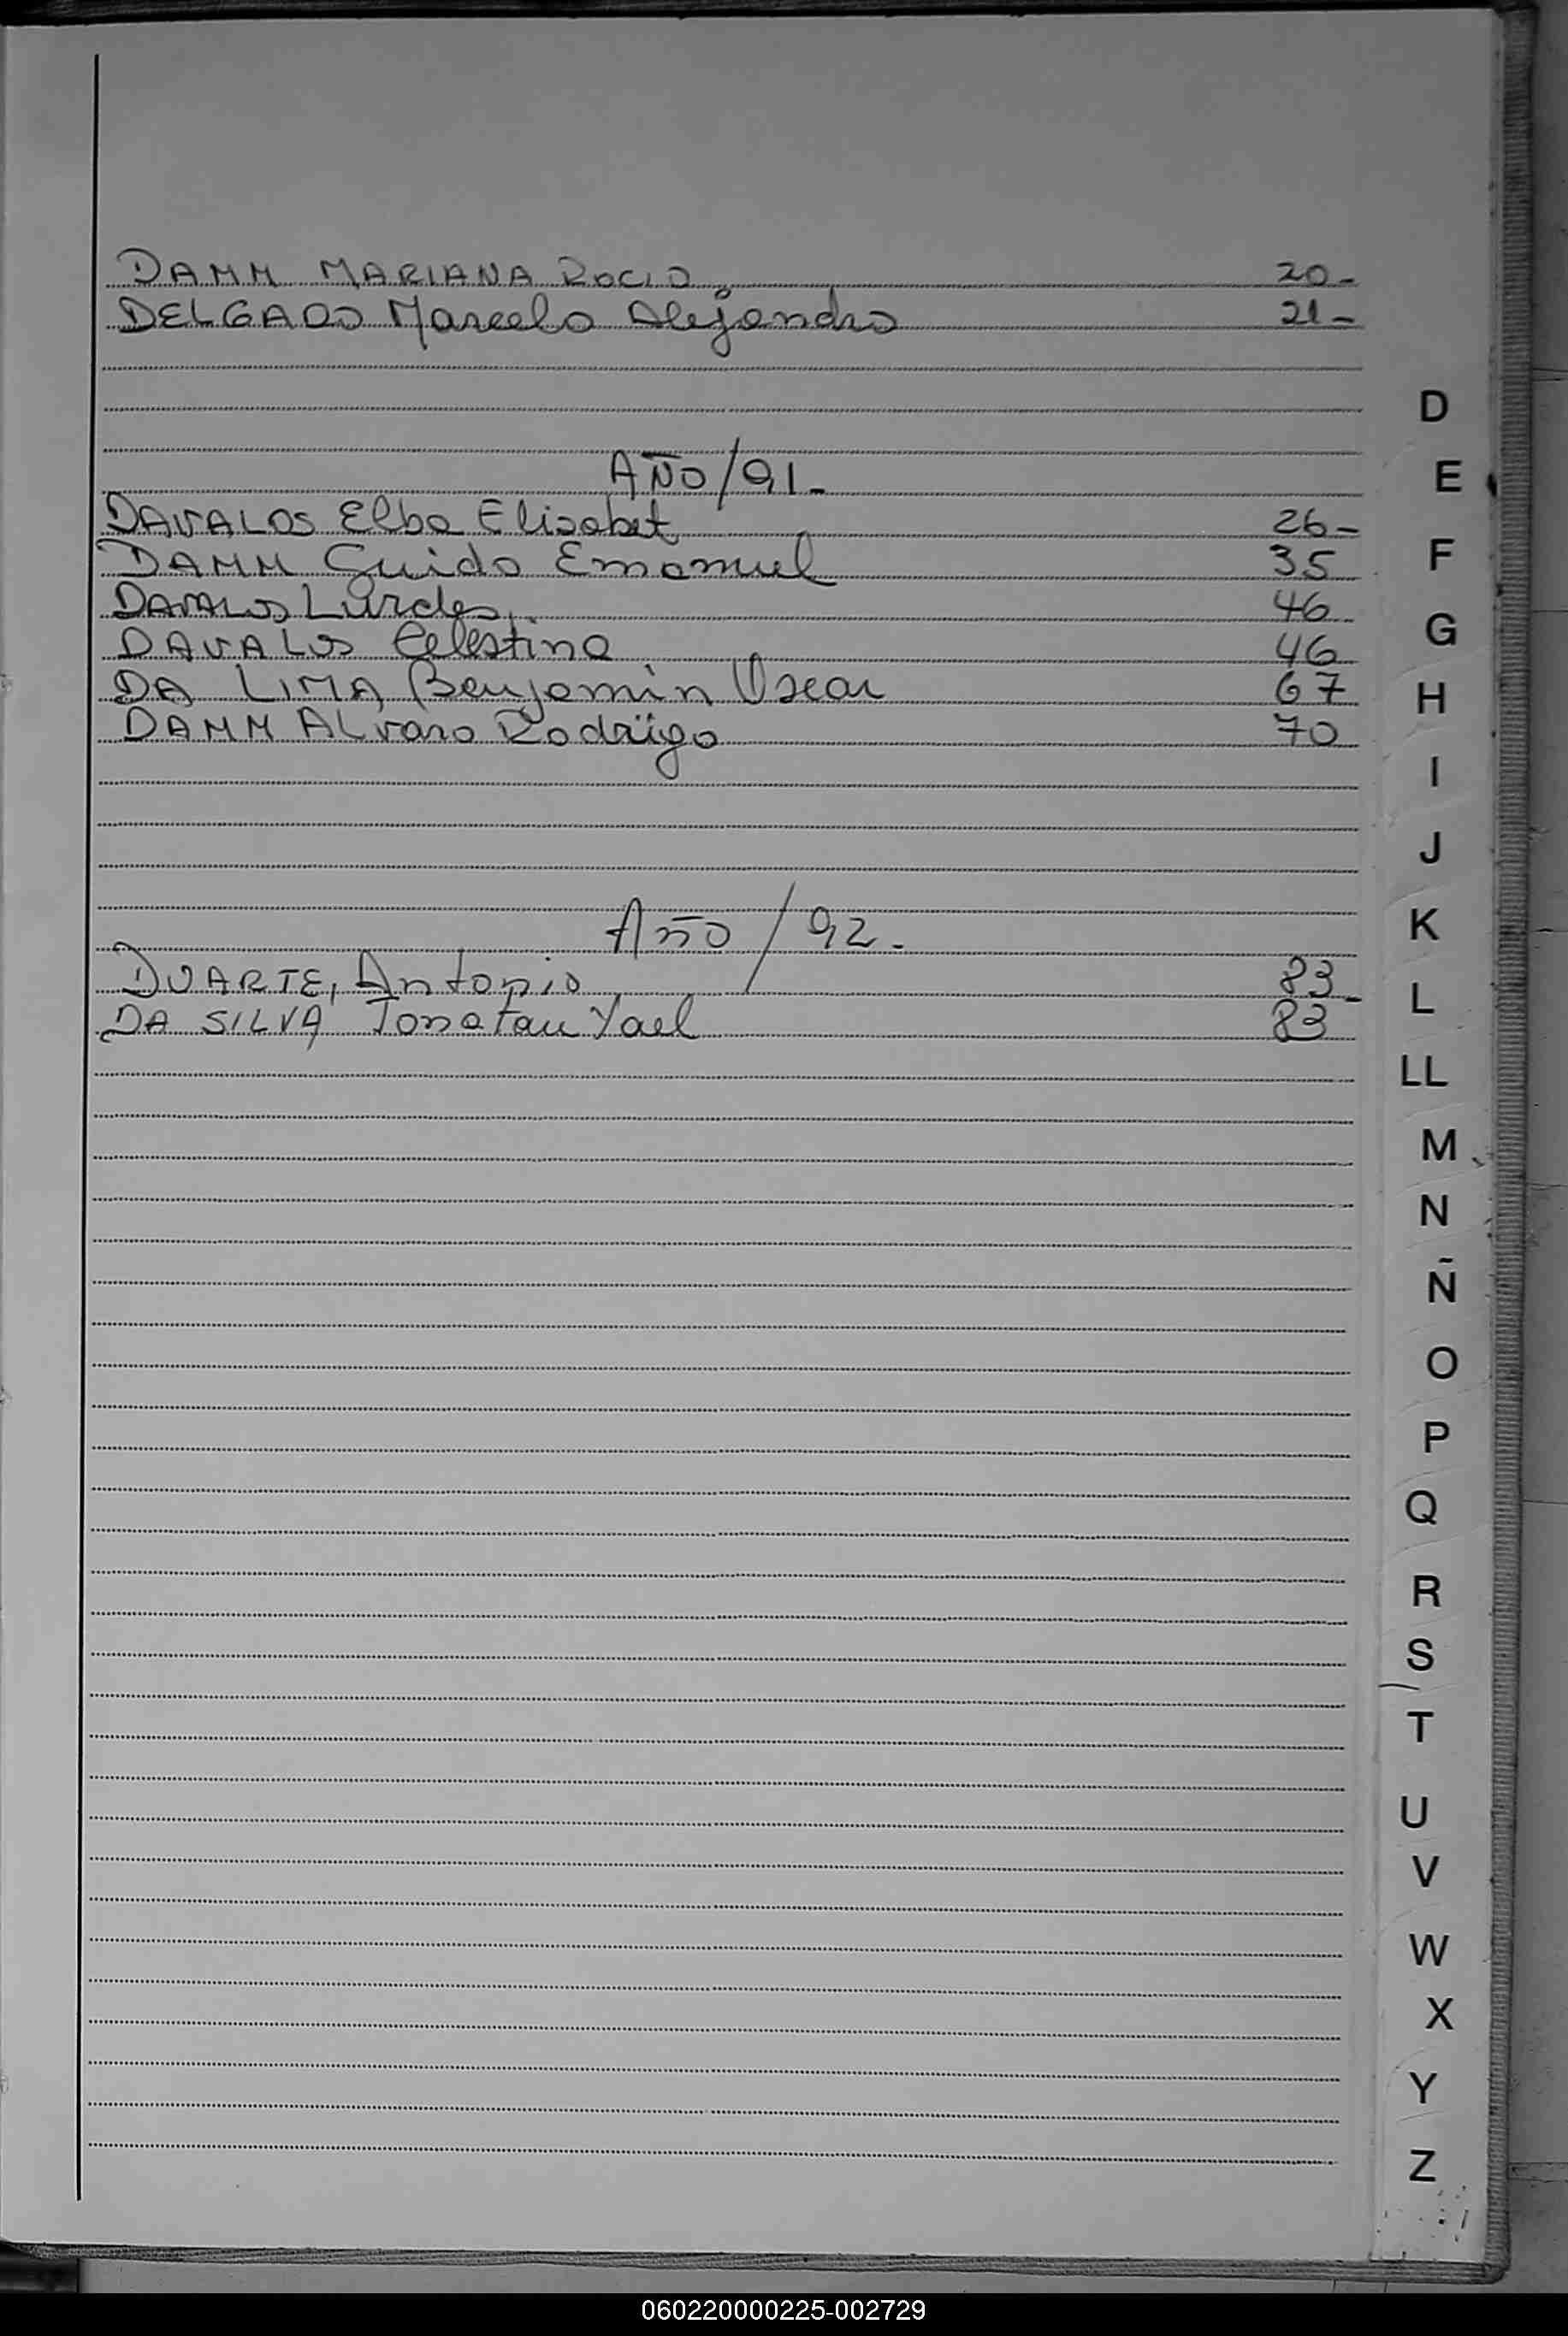 DAMM MARIANA ROCIO. 20-
DELGADO Marcelo Alejandro 21-
AÑO/91-
DAVALOS Elba Elisabet 26-
DAMM Guido Emanuel 35
DAVALOS Lurdes 46
DAVALOS Celestina 46
DA LIMA, Benjamin Oscar 67
DAMM ALvaro Rodrigo 70
Año/92-
DUARTE, Antonio 83-
DA SILVA Jonatan Yael 83
D
E
F
G
H
I
J
K
L
LL
M
N
Ñ
O
P
Q
R
S
T
U
V
W
X
Y
Z
060220000225-002729